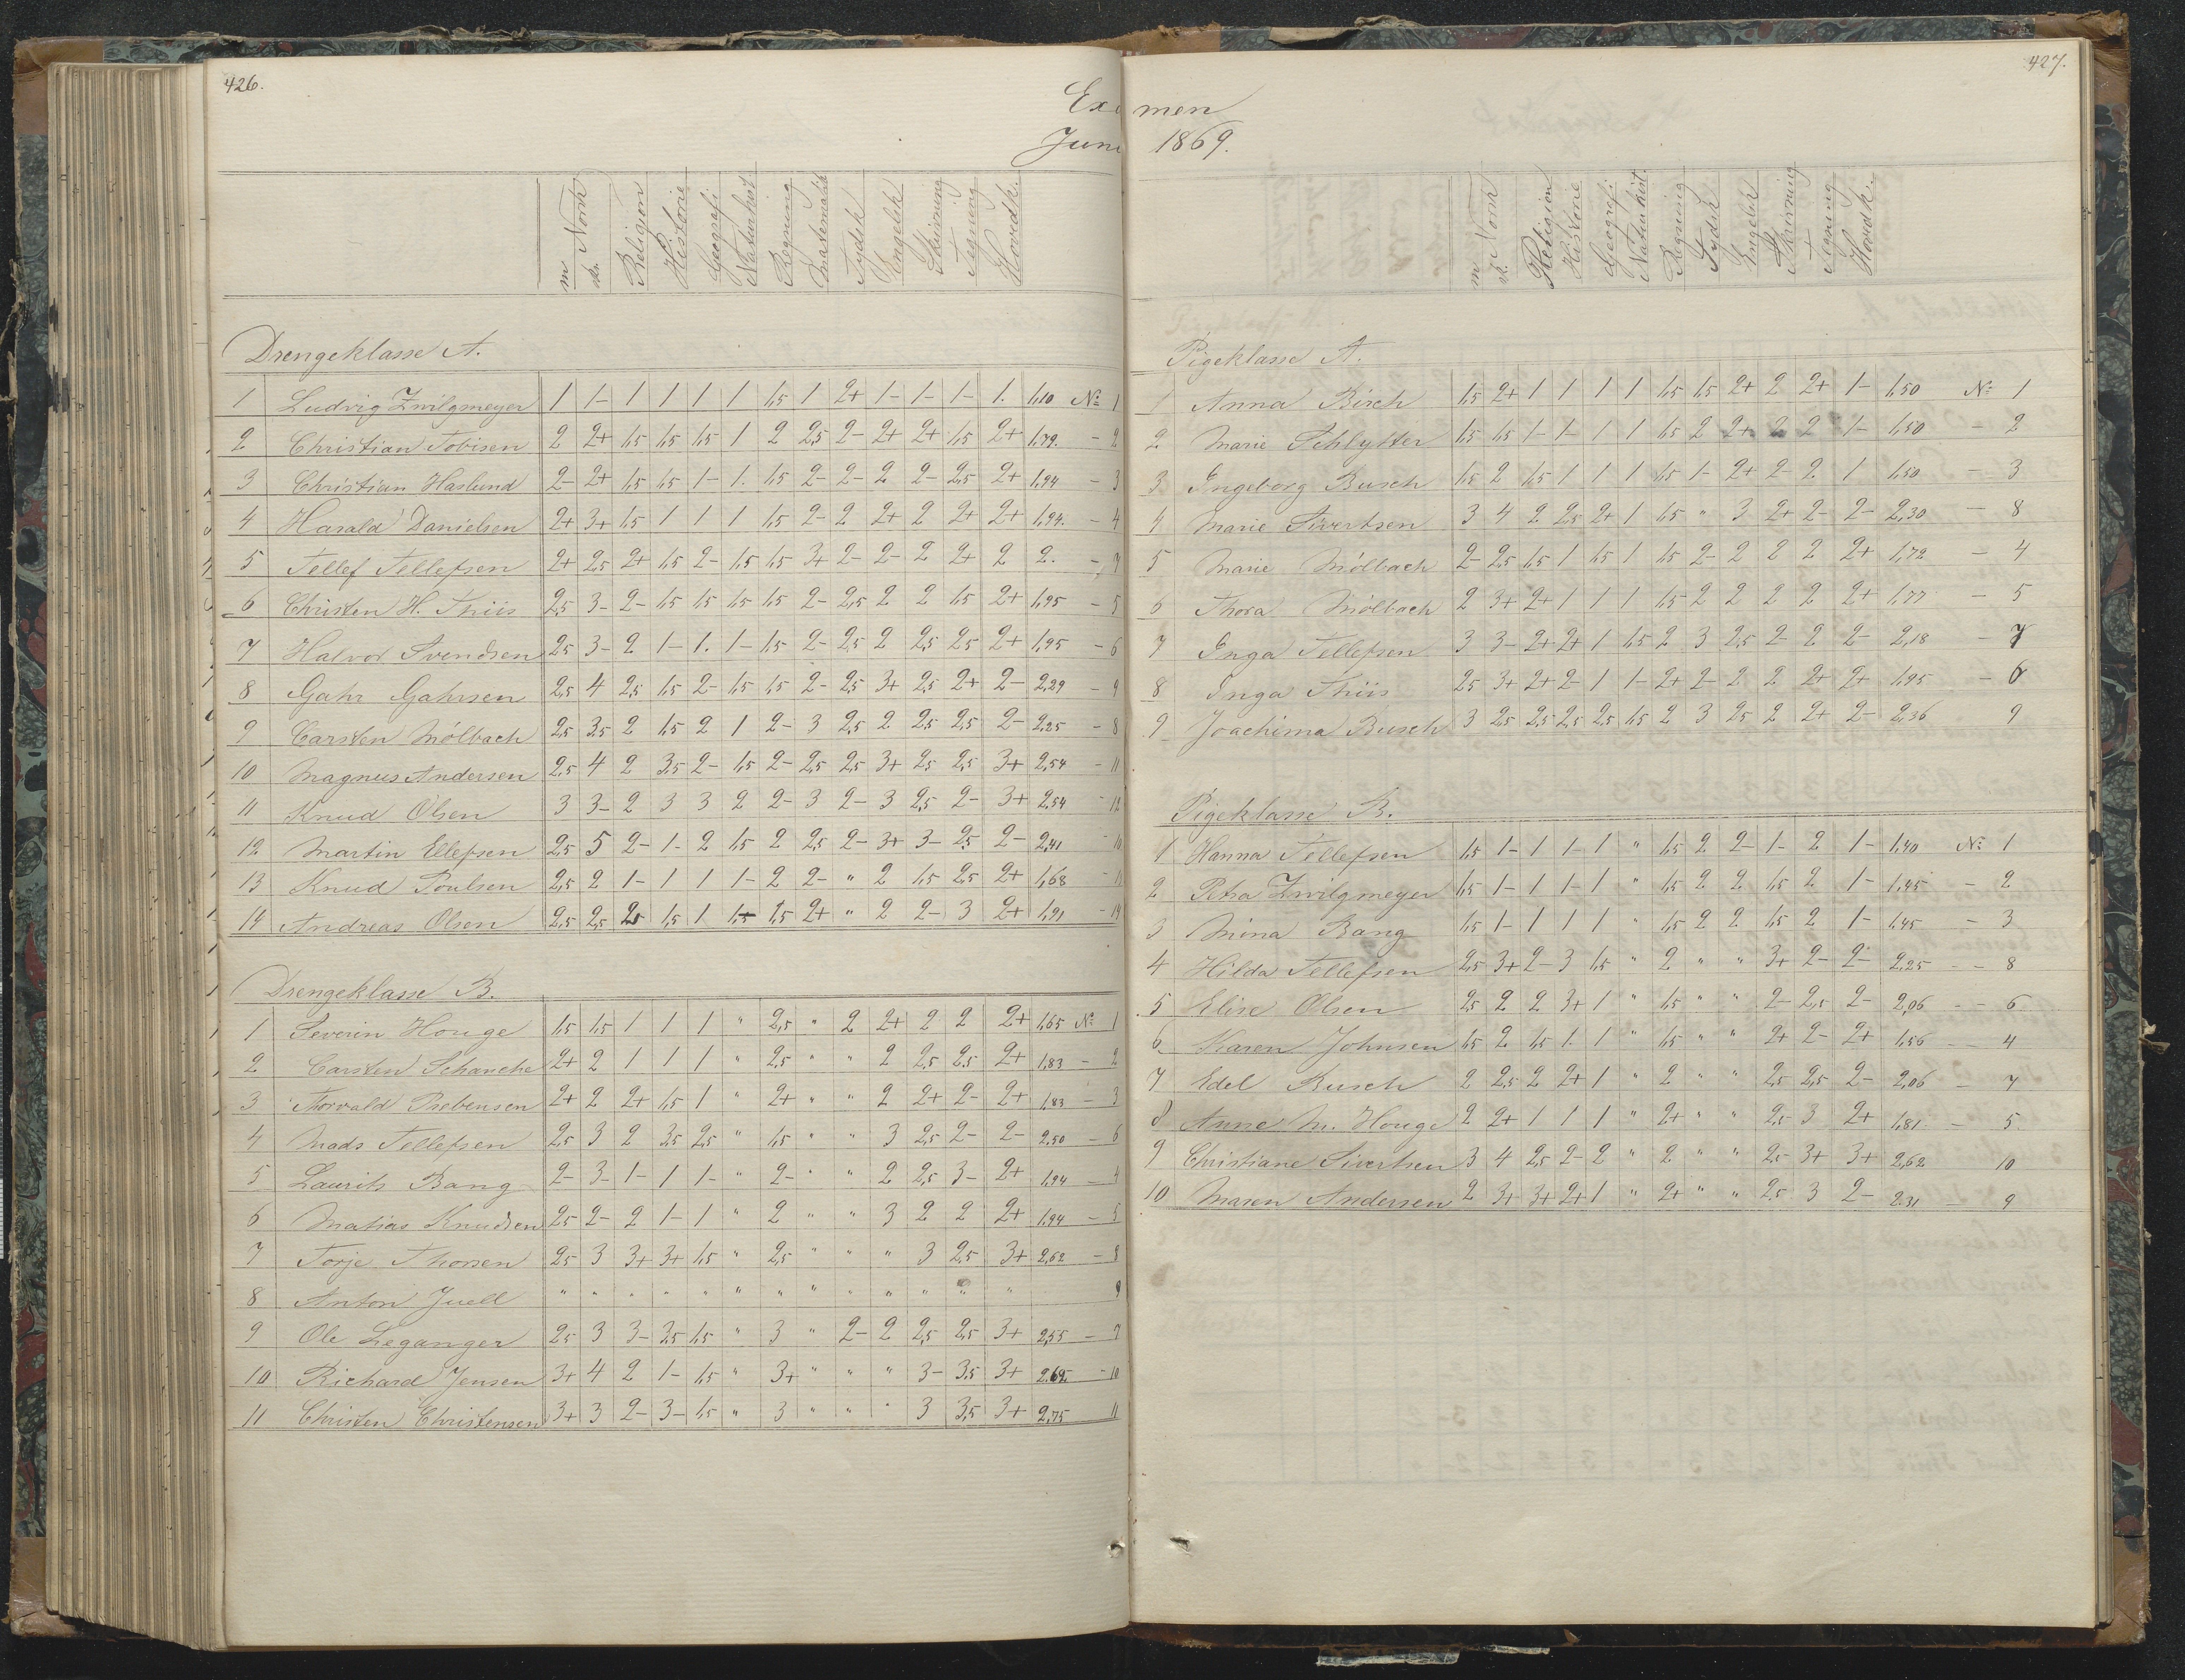 426.
Exa
Juni
m. Norsk
sk.
Religion
Historie
Geografi
Naturhist
Regning
Matematik
Tydsk
Engelsk
Skrivning
Tegning
Hovedk.
Drengeklasse A.
1 Ludvig Zwilgmeyer 1 1- 1 1 1 1 1,5 1 2+ 1- 1- 1- 1. 1,10 No 1
2 Christian Tobisen 2 2+ 1,5 1,5 1,5 1 2 2,5 2- 2+ 2+ 1,5 2+ 1,79. - 2
3 Christian Haslund 2- 2+ 1,5 1,5 1- 1. 1,5 2- 2- 2 2- 2,5 2+ 1,94 - 3
4 Harald Danielsen 2+ 3+ 1,5 1 1 1 1,5 2- 2 2+ 2 2+ 2+ 1,94. - 4
5 Tellef Tellefsen 2+ 2,5 2+ 1,5 2- 1,5 1,5 3+ 2- 2- 2 2+ 2 2. - 7
6 Christen H. Thiis 2,5 3- 2- 1,5 1,5 1,5 1,5 2- 2,5 2 2 1,5 2+ 1,95 - 5
7 Halvor Svendsen 2,5 3- 2 1- 1. 1- 1,5 2- 2,5 2 2,5 2,5 2+ 1,95 - 6
8 Gahr Gahrsen 2,5 4 2,5 1,5 2- 1,5 1,5 2- 2,5 3+ 2,5 2+ 2- 2,29 - 9
9 Carsten Mölbach 2,5 3,5 2 1,5 2 1 2- 3 2,5 2 2,5 2,5 2- 2,25 - 8
10 Magnus Andersen 2,5 4 2 3,5 2- 1,5 2- 2,5 2,5 3+ 2,5 2,5 3+ 2,54 - 11
11 Knud Olsen 3 3- 2 3 3 2 2- 3 2- 3 2,5 2- 3+ 2,54 - 12
12 Martin Ellefsen 2,5 5 2- 1- 2 1,5 2 2,5 2- 3+ 3- 2,5 2- 2,41 - 10
13 Knud Poulsen 2,5 2 1- 1 1 1- 2 2- " 2 1,5 2,5 2+ 1,68 - 13
14 Andreas Olsen 2,5 2,5 2,5 1,5 1 1,5 1,5 2+ " 2 2- 3 2+ 1,91 - 14
Drengeklasse B.
1 Severin Houge 1,5 1,5 1 1 1 " 2,5 " 2 2+ 2 2 2+ 1,65 No 1
2 Carsten Schanche 2+ 2 1 1 1 " 2,5 " " 2 2,5 2,5 2+ 1,83 - 2
3 Thorvald Prebensen 2+ 2 2+ 1,5 1 " 2+ " " 2 2+ 2- 2+ 1,83 - 3
4 Mads Tellefsen 2,5 3 2 3,5 2,5 " 1,5 " " 3 2,5 2- 2- 2,50 - 6
5 Laurits Bang 2- 3- 1- 1 1- " 2- " " 2 2,5 3- 2+ 1,94 - 4
6 Matias Knudsen 2,5 2- 2 1- 1 " 2 " " 3 2 2 2+ 1,94 - 5
7 Torje Thorsen 2,5 3 3+ 3+ 1,5 " 2,5 " " " 3 2,5 3+ 2,62 - 8
8 Anton Juell " " " " " " " " " " " " " 9
9 Ole Leganger 2,5 3 3- 3,5 1,5 " 3 " 2- 2 2,5 2,5 3+ 2,55 - 7
10 Richard Jensen 3+ 4 2 1- 1,5 " 3+ " " " 3- 3,5 3+ 2,69. - 10
11 Christen Christensen 3+ 3 2- 3- 1,5 " 3 " " " 3 3,5 3+ 2,75 11
427.
men
1869.
m. Norsk
sk.
Religion
Historie
Geografi
Naturhist.
Regning
Tydsk
Engelsk
Skrivning
Tegning
Hovedk.
Pigeklasse A.
1 Anna Birch 1,5 2+ 1 1 1 1 1,5 1,5 2+ 2 2+ 1- 1,50 No 1
2 Marie Schlytter 1,5 1,5 1- 1- 1 1 1,5 2 2+ 2 2 1- 1,50 - 2
3 Ingeborg Busch 1,5 2 1,5 1 1 1 1,5 1- 2+ 2- 2 1 1,50 - 3
4 Marie Sivertsen 3 4 2 2,5 2+ 1 1,5 " 3 2+ 2- 2- 2,30 - 8
5 Marie Mölbach 2- 2,5 1,5 1 1,5 1 1,5 2- 2 2 2 2+ 1,72 - 4
6 Thora Mölbach 2 3+ 2+ 1 1 1 1,5 2 2 2 2 2+ 1,77 - 5
7 Inga Tellefsen 3 3- 2+ 2+ 1 1,5 2 3 2,5 2- 2 2- 2,18 - 7
8 Inga Thiis 2,5 3+ 2+ 2- 1 1- 2+ 2- 2 2 2+ 2+ 1,95 - 6
9 Joachima Busch 3 2,5 2,5 2,5 2,5 1,5 2 3 2,5 2 2+ 2- 2,36 9
Pigeklasse B.
1 Hanna Tellefsen 1,5 1- 1 1- 1 " 1,5 2 2- 1- 2 1- 1,40 No 1
2 Petra Zwilgmeyer 1,5 1- 1 1- 1 " 1,5 2 2 1,5 2 1- 1,45 - 2
3 Mina Bang 1,5 1- 1 1 1 " 1,5 2 2 1,5 2 1- 1,45 - 3
4 Hilda Tellefsen 2,5 3+ 2- 3 1,5 " 2 " " 3+ 2- 2- 2,25 - - 8
5 Elise Olsen 2,5 2 2 3+ 1 " 1,5 " " 2- 2,5 2- 2,06 - - 6
6 Karen Johnsen 1,5 2 1,5 1. 1 " 1,5 " " 2+ 2- 2+ 1,56 - - 4
7 Edel Busch 2 2,5 2 2+ 1 " 2 " " 2,5 2,5 2- 2,06 - 7
8 Anne M. Houge 2 2+ 1 1 1 " 2+ " " 2,5 3 2+ 1,81 - 5.
9 Christiane Sivertsen 3 4 2,5 2- 2 " 2 " " 2,5 3+ 3+ 2,62 10
10 Maren Andersen 2 3+ 3+ 2+ 1 " 2+ " " 2,5 3 2- 2,31 - 9